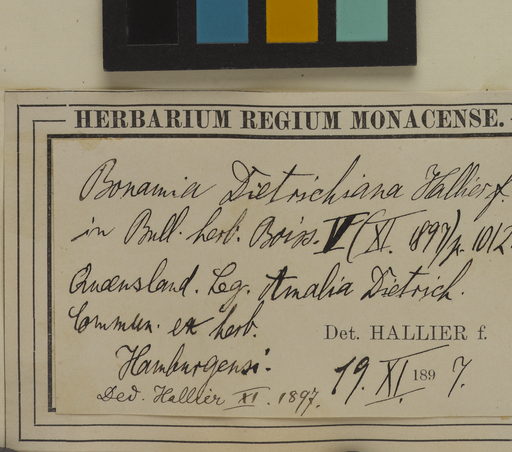 HERBARIUM REGIUM MONACENSE.
Bonamia Dietrichiana Hallier f.
in Bull. herb. Boiss. V (XI. 1897) p. 1012.
Queensland. leg. Amalia Dietrich.
Commun. ex herb.
Det. HALLIER f.
Hamburgensi.
19. XI. 1897.
Ded. Hallier XI. 1897.